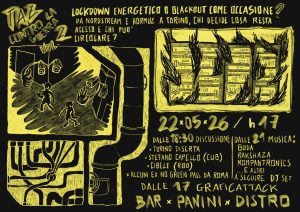 TAZ
CONTRO LA
GUERRA
2
LOCKDOWN ENERGETICO O BLACKOUT COME OCCASIONE?
DA NORDSTREAM E HORMUZ A TORINO, CHI DECIDE COSA RESTA
ACCESO E CHI PUÒ
CIRCOLARE?
22.05.26 / h17
DALLE 18:30 DISCUSSIONE
• TORINO DISERTA
• STEFANO CAPELLO (CUB)
• CIBLEZ (ROB)
• ALCUNI EX NO GREEN PASS DA ROMA
DALLE 21 MUSICA:
BUDA
RAKSHAZA
MOMPANTRONICS
E ALTRI
A SEGUIRE DJ SET
DALLE 17 GRAFICATTACK
BAR × PANINI × DISTRO